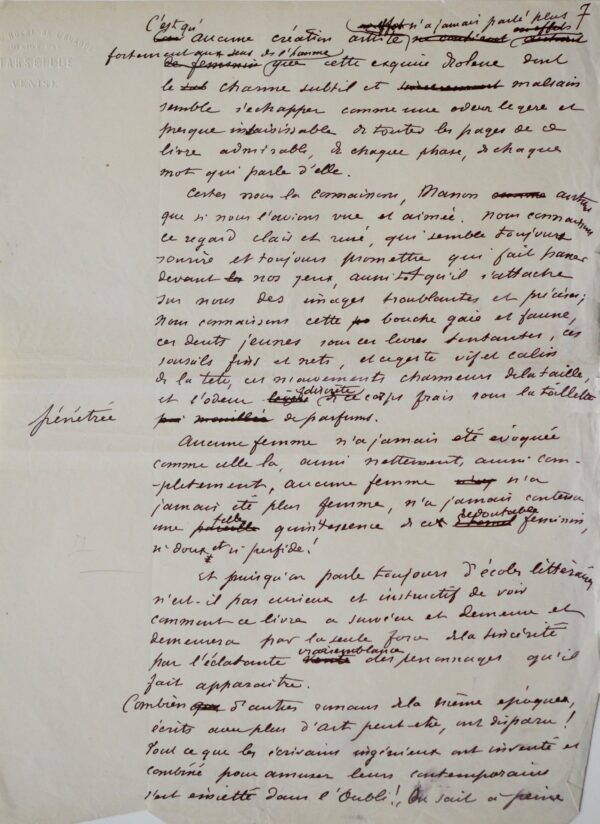 7
MARSEILLE
C'est qu'
aucune création artiste n'a jamais parlé plus
fortement aux sens de l'homme
que cette exquise drolesse dont
le charme subtil et malsain
semble s'echapper comme une odeur legere et
presque insaisissable de toutes les pages de ce
livre admirable, de chaque phase, de chaque
mot qui parle d'elle.
Certes nous la connaissons, Manon autant
que si nous l'avions vue et aimée. Nous connaissons
ce regard clair et rusé, qui semble toujours
sourire et toujours promettre qui fait passer
devant nos yeux, aussitot qu'il s'attache
sur nous des images troublantes et précises;
Nous connaissons cette bouche gaie et fausse,
ces dents jeunes sous ces levres tentantes, ces
sourcils fins et nets, et ce geste vif et calin
de la tete, ces mouvements charmeurs de la taille,
et l'odeur discrète de ce corps frais sous la toilette
pénétrée de parfums.
Aucune femme n'a jamais été évoquée
comme celle la, aussi nettement, aussi com-
-pletement, aucune femme n'a
jamais été plus femme, n'a jamais contenu
une telle quintessence de ce redoutable feminin,
si doux et si perfide!
Et puisqu'on parle toujours d'écoles littéraires
n'est-il pas curieux et instructif de voir
comment ce livre a survécu et demeure et
demeurera par la seule force de la sincérité
par l'éclatante vraisemblance des personnages qu'il
fait apparaitre.
Combien d'autres romans de la même epoque,
écrits avec plus d'art peut-etre, ont disparu!
Tout ce que les écrivains ingénieux ont inventé et
combiné pour amuser leurs contemporains
s'est emietté dans l'Oubli! On sait à peine